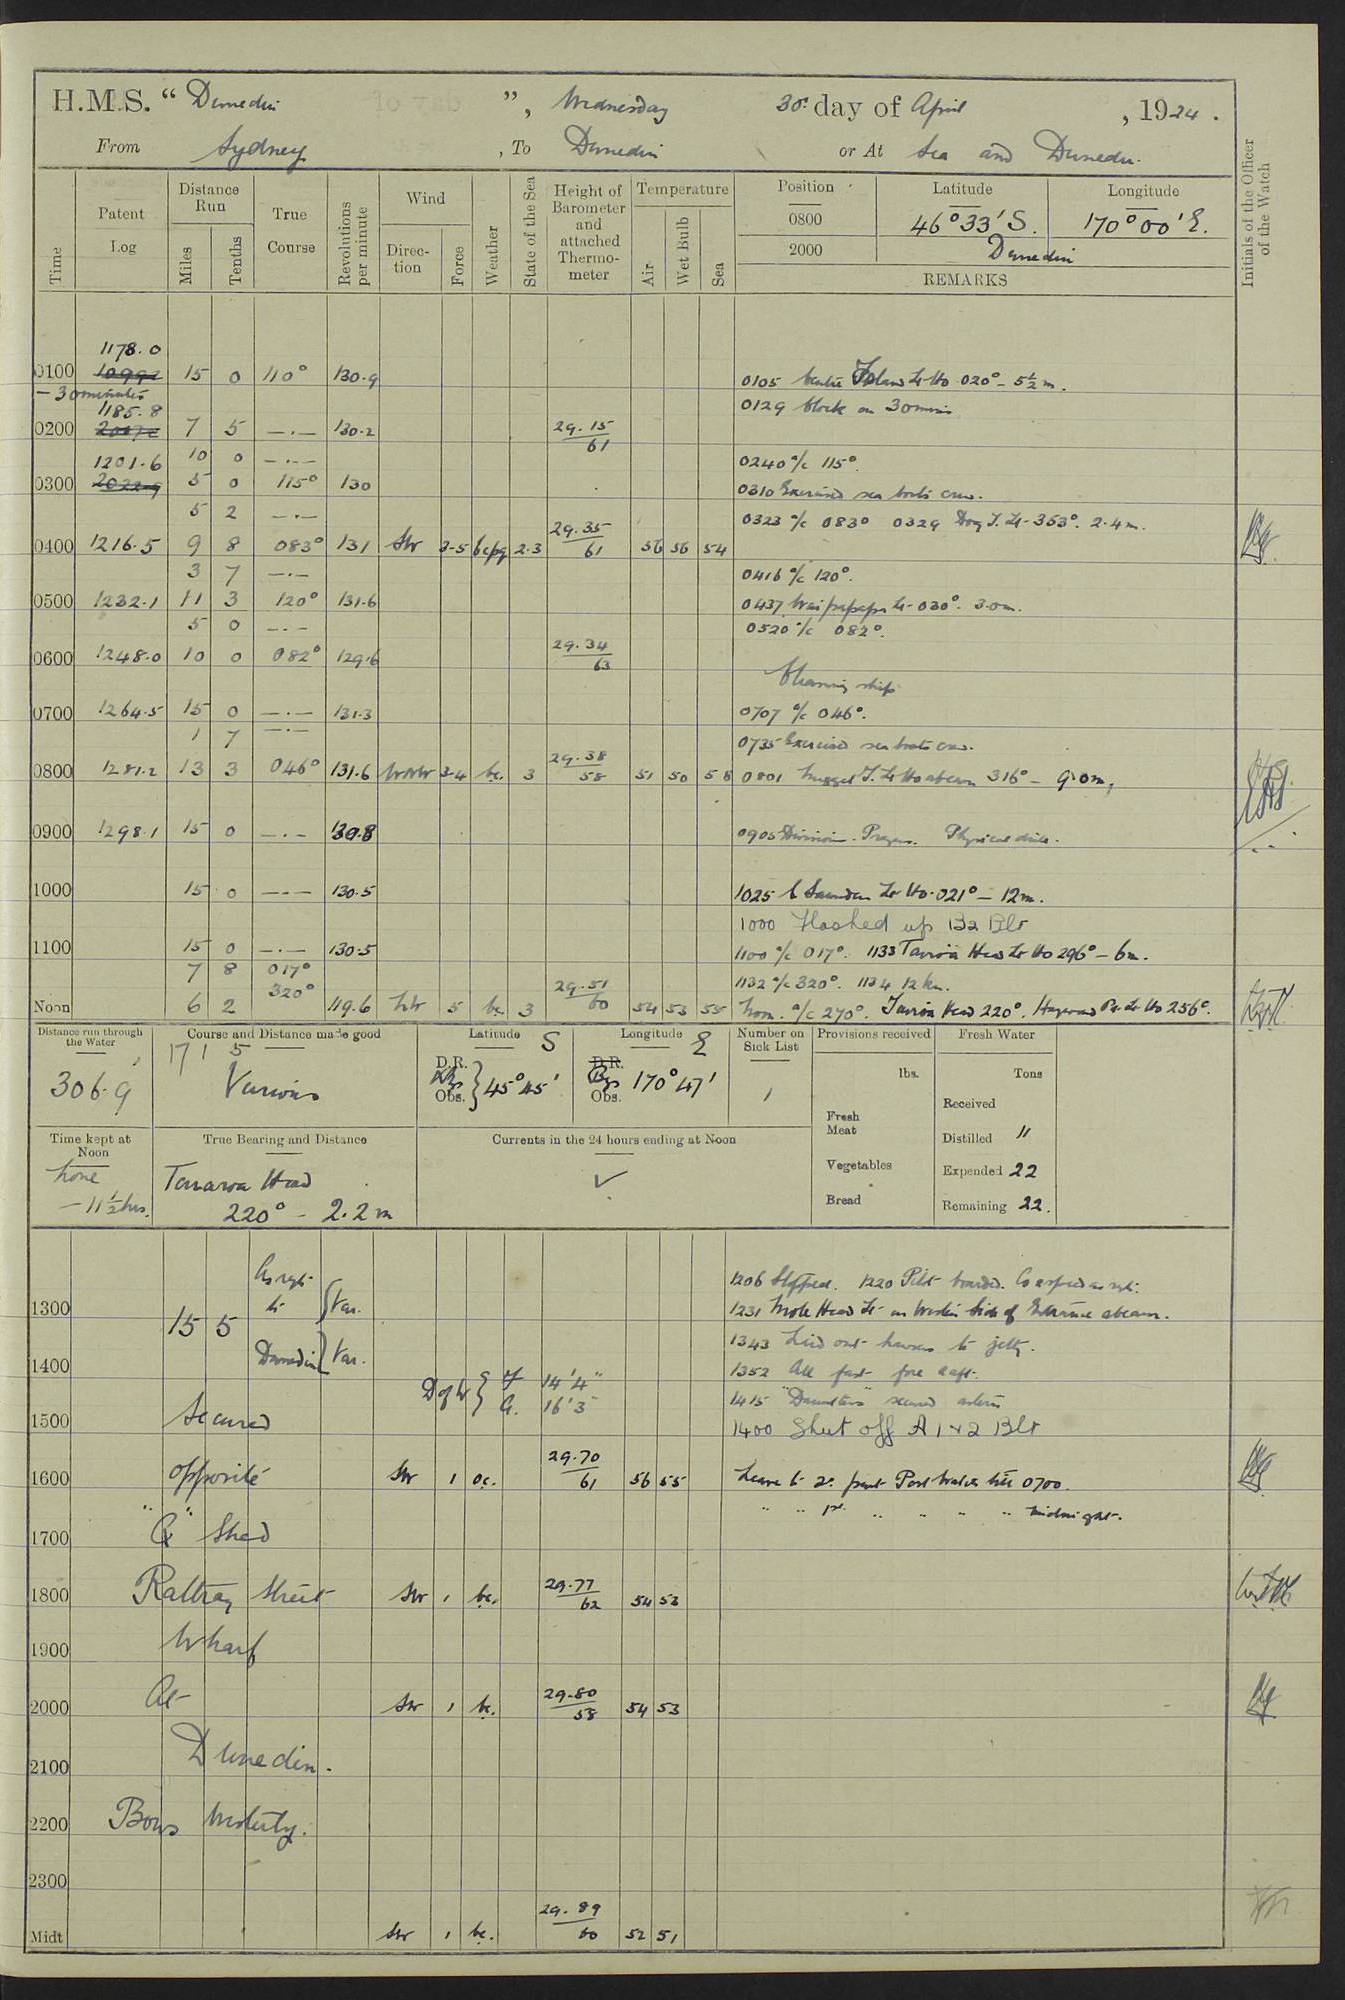 H.M.S. “ Dunedin ”, Wednesday 30th day of April , 1924 .
From Sydney , To Dunedin or At Sea and Dunedin.
Time Patent Log Distance Run Miles Tenths True Course Revolutions per minute Wind Direction Force Weather State of the Sea Height of Barometer and attached Thermometer Temperature Air Wet Bulb Sea Position Latitude Longitude Initials of the Officer of the Watch
0800 46° 33' S. 170° 00' E.
2000 Dunedin
REMARKS
1178.0
0100 15 0 110° 130.9 0105 Centre Island Lt Ho 020° - 5½ m.
- 30 minutes 0129 Clock on 30 mins
1185.8
0200 7 5 —.— 130.2 29.15 61
1201.6 10 0 —.— 0240 a/c 115°.
0300 5 0 115° 130 0310 Exercised sea boats crew.
5 2 —.— 0323 a/c 083° 0329 Dog I. Lt 353°. 2.4 m.
0400 1216.5 9 8 083° 131 SW 3-5 bcpq 2.3 29.35 61 56 56 54
3 7 —.— 0416 a/c 120°.
0500 1232.1 11 3 120° 131.6 0437 Waipapapa Lt 030°. 3.0m.
5 0 —.— 0520 a/c 082°.
0600 1248.0 10 0 082° 129.6 29.34 63
Cleaning ship
0700 1264.5 15 0 —.— 131.3 0707 a/c 046°.
1 7 —.— 0735 Exercised sea boats crew.
0800 1281.2 13 3 046° 131.6 WNW 3-4 bc. 3 29.38 58 51 50 58 0801 Nugget Pt. Lt Ho abeam 316° - 9.0m,
0900 1298.1 15 0 —.— 130.8 0905 Divisions. Prayers. Physical drill.
1000 15 0 —.— 130.5 1025 C Saunders Lt Ho 021° - 12m.
1000 Flashed up B2 Blr
1100 15 0 —.— 130.5 1100 a/c 017°. 1133 Taiaroa Head Lt Ho 296° - 6m.
7 8 017° 1132 a/c 320°. 1134 12 kn.
320°
Noon 6 2 119.6 5 bc 3 29.51 60 54 53 55 Noon. a/c 270°. Taiaroa Head 220°. Lt Ho 256°.
Distance run through the Water Course and Distance made good Latitude S Longitude E Number on Sick List Provisions received Fresh Water
306.9 171 5 Various D.R. Obs. 45° 45' D.R. Obs. 170° 47' 1 lbs. Tons
Fresh Meat Vegetables Bread
Received
Distilled "
Expended 22
Remaining 22.
Time kept at Noon True Bearing and Distance Currents in the 24 hours ending at Noon
Zone - 11½ hrs. Taiaroa Head 220° - 2.2 m ✓
As reqt. 1206 Stopped. 1220 Pilot boarded. Co & speed as reqt.
1300 to Var. 1231 Mole Head Lt on Western Side of Entrance abeam.
15 5 1343 Laid out hawsers to jetty.
1400 Dunedin Var. 1352 All fast fore & aft.
D of W F 14' 4"
A. 16' 3" 1415 "Dauntless" secured astern
1500 Secured 1400 Shut off A 1 & 2 Blr
1600 opposite SW 1 oc. 29.70 61 56 55 Leave to 2nd part Port Watch till 0700.
" " 1st " " " " midnight.
1700 "Q" Shed
1800 Rattray Street SW 1 bc. 29.77 62 54 53
1900 Wharf
2000 At SW 1 bc. 29.80 58 54 53
2100 Dunedin.
2200 Bows Westerly.
2300
Midt SW 1 bc. 29.89 60 52 51